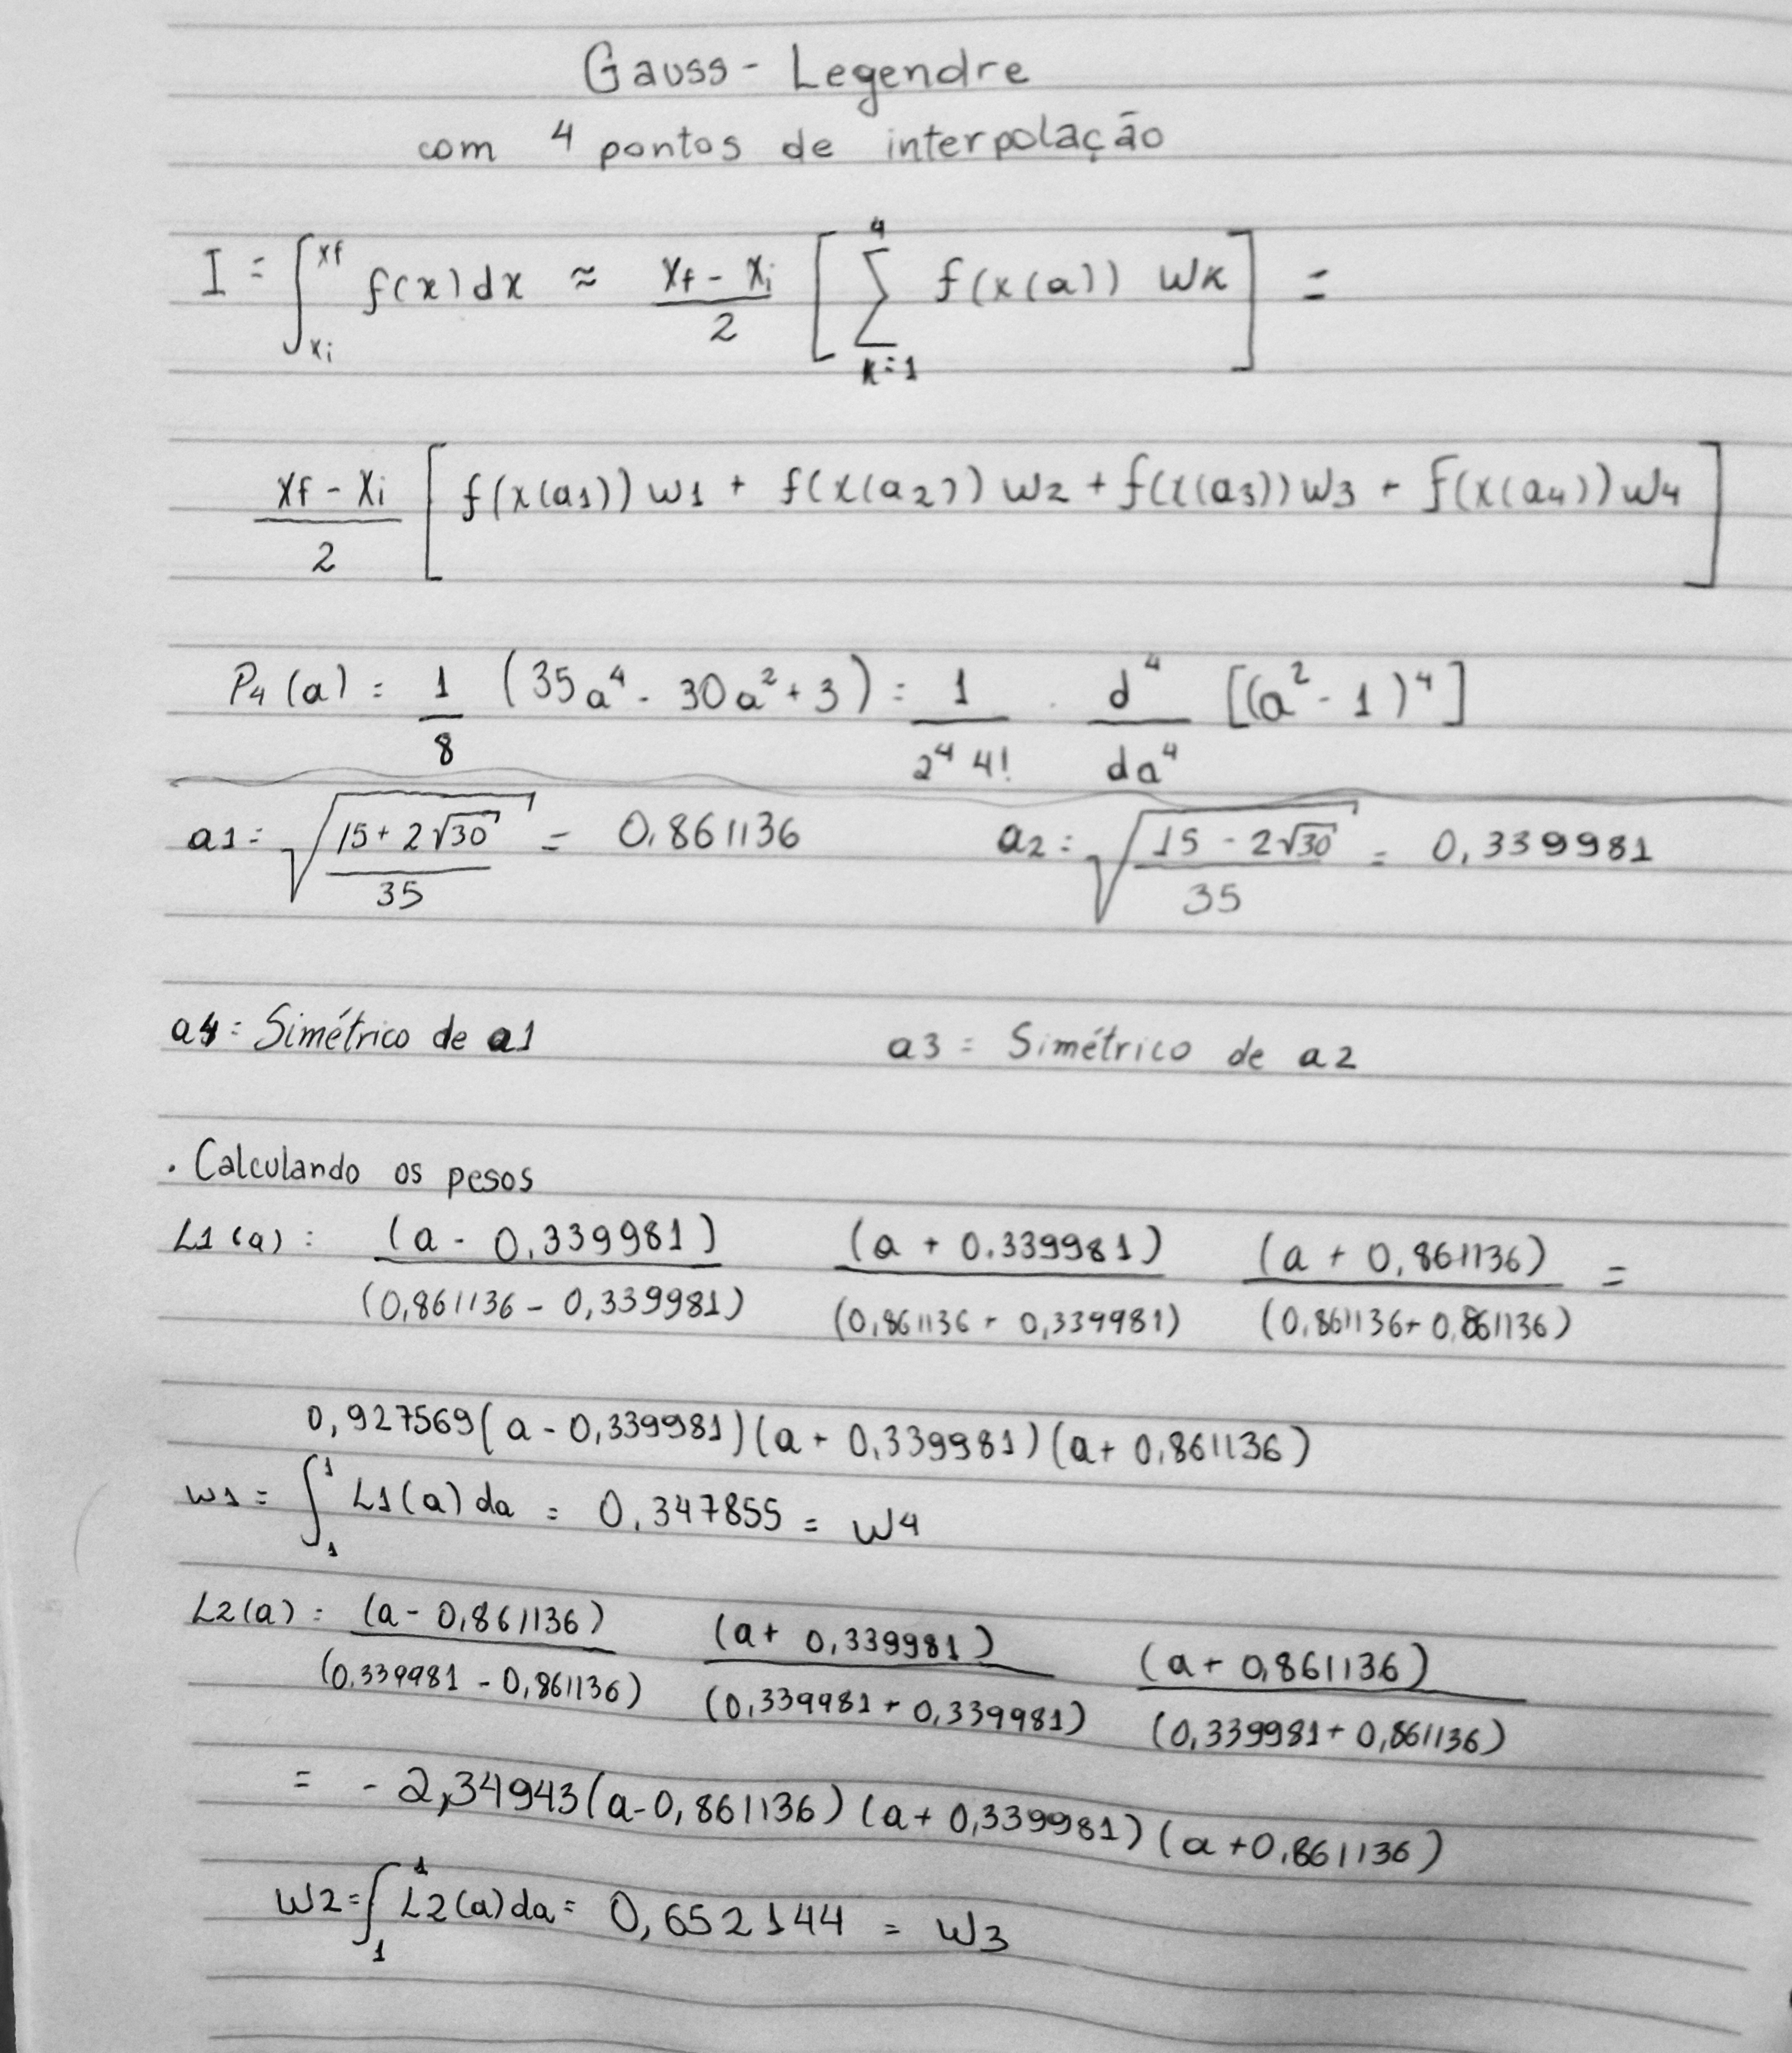 Gauss - Legendre
com 4 pontos de interpolação
I = ∫_{xi}^{xf} f(x)dx ≈ (xf - xi)/2 [ Σ_{k=1}^{4} f(x(a)) wk ] =
(xf - xi)/2 [ f(x(a1)) w1 + f(x(a2)) w2 + f(x(a3)) w3 + f(x(a4)) w4 ]
P4(a) = 1/8 (35a^4 - 30a^2 + 3) = 1/(2^4 4!) . d^4/da^4 [(a^2 - 1)^4]
a1 = √((15 + 2√30)/35) = 0,861136 a2 = √((15 - 2√30)/35) = 0,339981
a4 = Simétrico de a1 a3 = Simétrico de a2
. Calculando os pesos
L1(a) : (a - 0,339981)/(0,861136 - 0,339981) (a + 0,339981)/(0,861136 + 0,339981) (a + 0,861136)/(0,861136 + 0,861136) =
0,927569(a - 0,339981)(a + 0,339981)(a + 0,861136)
w1 = ∫_{1}^{1} L1(a)da = 0,347855 = w4
L2(a) : (a - 0,861136)/(0,339981 - 0,861136) (a + 0,339981)/(0,339981 + 0,339981) (a + 0,861136)/(0,339981 + 0,861136)
= - 2,34943(a - 0,861136)(a + 0,339981)(a + 0,861136)
w2 = ∫_{1}^{1} L2(a)da = 0,652144 = w3